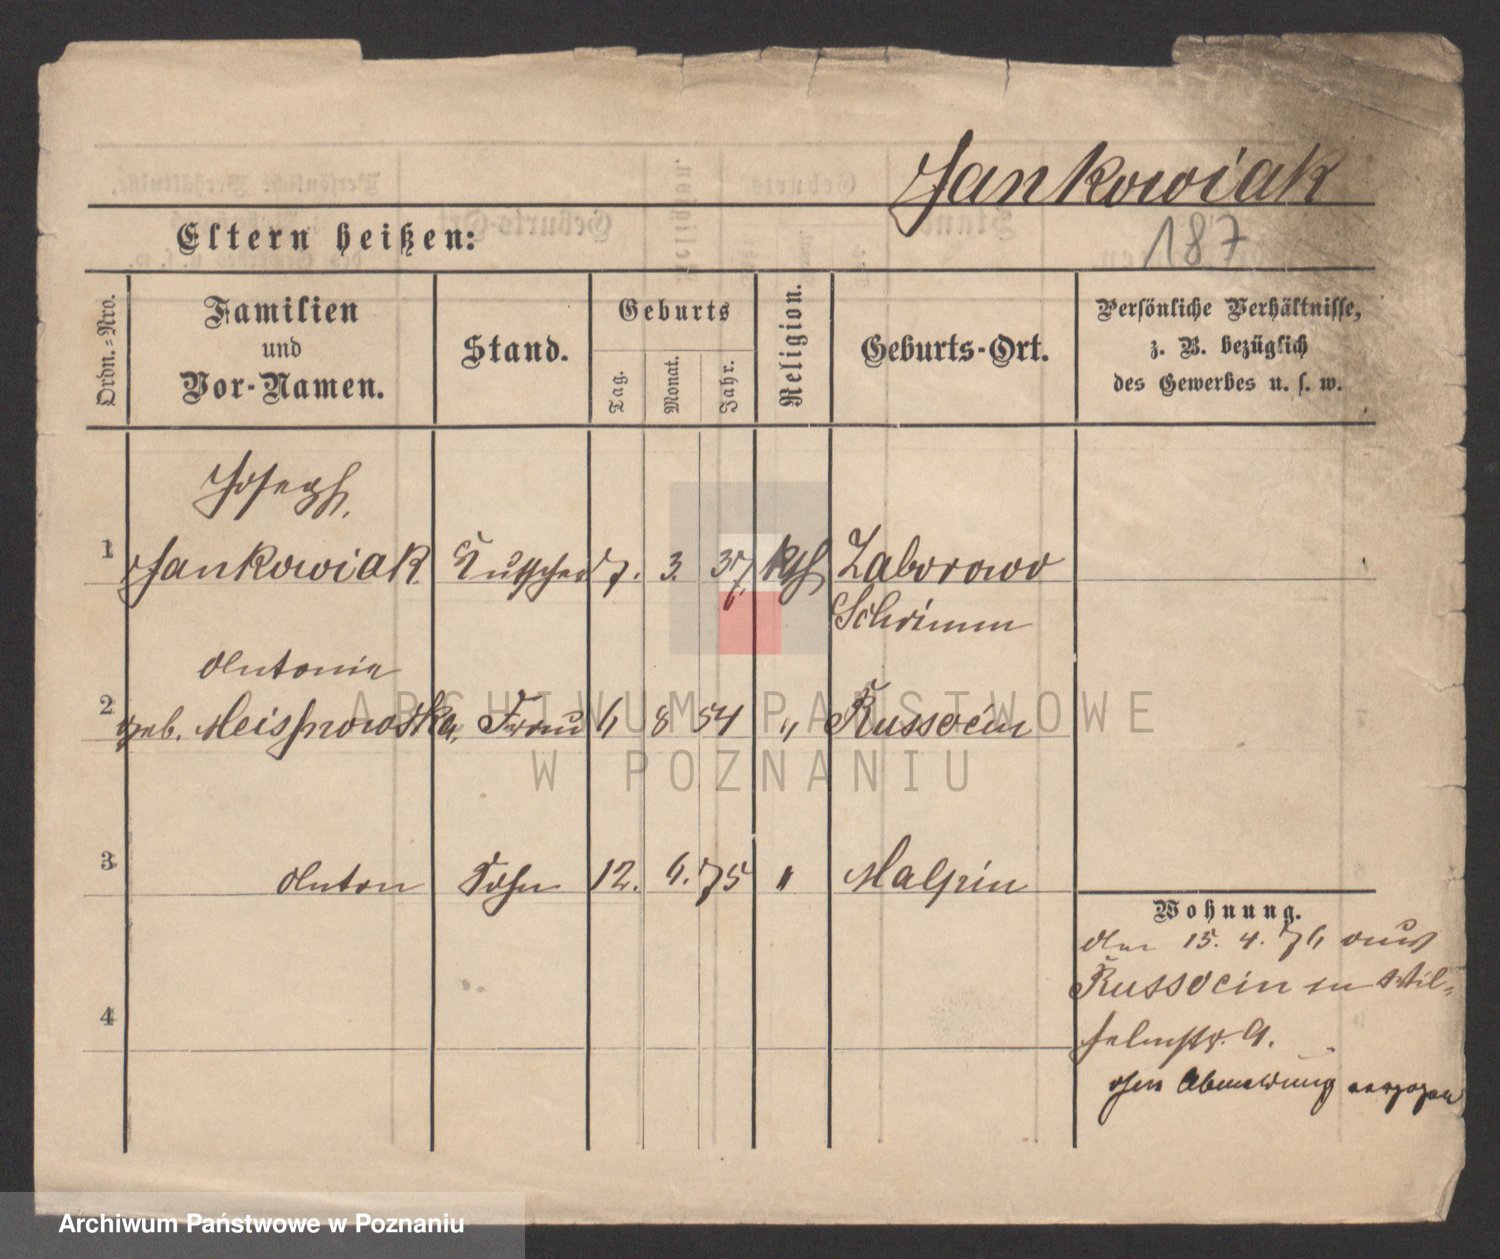 Jankowiak
187
Eltern heißen:
Ordn.-Nro.
Familien
und
Vor-Namen.
Stand.
Geburts
Tag.
Monat.
Jahr.
Religion.
Geburts-Ort.
Persönliche Verhältnisse,
z. B. bezüglich
des Gewerbes u. s. w.
Joseph
1 Jankowiak Kutscher 7. 3. 37. kth Zaborowo
Schrimm
Antonie
2 geb. Meisnowska, Frau 6 8 54 " Russocin
3 Anton Sohn 12. 6. 75 " Malpin
4
Wohnung.
den 15. 4. 76 aus
Russocin in Wil-
helmstr. 9.
ohne Abmeldung verzogen
ARCHIWUM PAŃSTWOWE
W POZNANIU
Archiwum Państwowe w Poznaniu